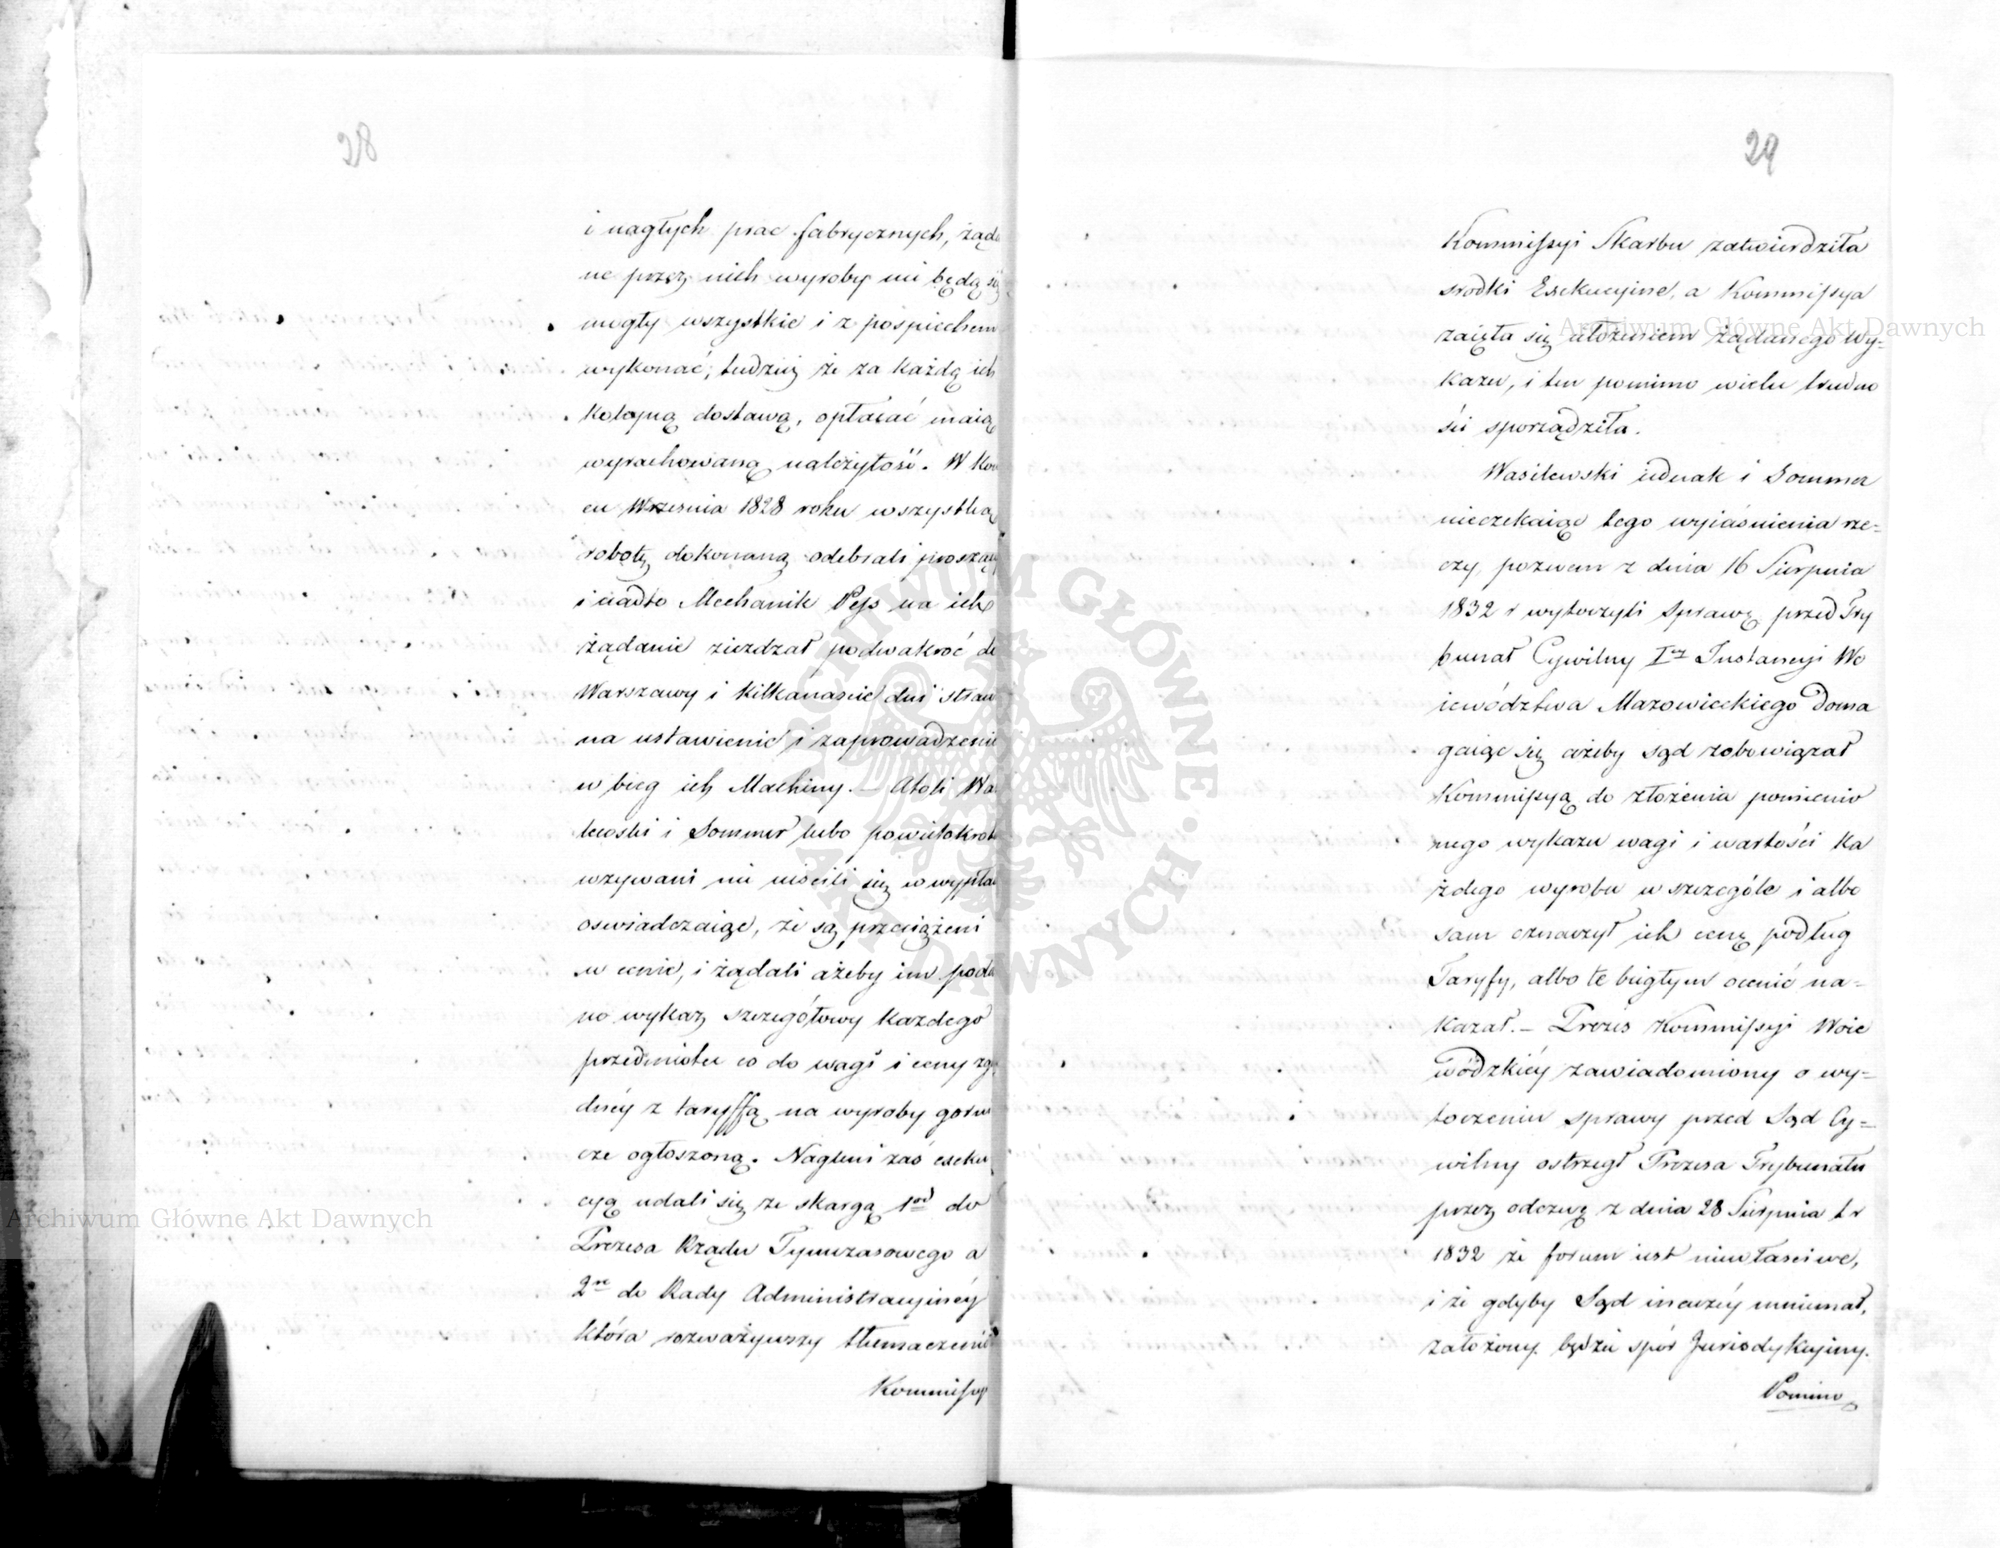 28
i nagłych prac fabrycznych, żąda
ne przez nich wyroby nie będą się
mogły wszystkie i z pośpiechem
wykonać, tudzież że za każdą ich
kolejną dostawą, opłacać maią
wyrachowaną należytość. W koń
cu Września 1828 roku wszystką
robotę dokonaną odebrali proszący
i nadto Mechanik Peys na ich
żądanie ziezdzał podwakroć do
Warszawy i kilkánaście dni straw
na ustawienie i zaprowadzenie
w bieg ich Machiny. — Atoli Wa
lewski i Sommer lubo powielokroć
wzywani nie uiścili się w wypłacie
oswiadczaiąc, że są przeciążeni
w cenie, i żądali ażeby im poda
no wykaz szczegółowy każdego
przedmiotu co do wagi i ceny zgo
dnéy z taryffą na wyroby górni
cze ogłoszoną. Nagleni zaś exeku
cyą udali się ze skargą 1od do
Prezesa Rządu Tymczasowego a
2re do Rady Administracyinéy
która rozważywszy tłumaczenie
Kommissyi
29
Kommissyi Skarbu zatwierdziła
srodki Exekucyine, a Kommissya
zaięła się ułożeniem żądanego Wy-
kazu, i ten pomimo wielu trudno
ści sporządziła.
Wasilewski iednak i Sommer
nieczekaiąc tego wyiaśnienia rze-
czy, pozwem z dnia 16 Sierpnia
1832 r wytoczyli Sprawę przed Try
bunał Cywilny Iéy Instancyi Wo
iewództwa Mazowieckiego doma
gaiąc się ażeby sąd zobowiązał
Kommissyą do złożenia pomienio
nego wykazu wagi i wartości ka
żdego wyrobu w szczególe i albo
sam oznaczył ich cenę podług
Taryfy, albo te biegłym ocenić na-
kazał. — Prezes Kommissyi Woie
wódzkiéy zawiadomiony o wy-
toczeniu sprawy przed Sąd Cy-
wilny ostrzegł Prezesa Trybunału
przez odezwę z dnia 28 Sierpnia t r
1832 że forum iest niewłaściwe,
i że gdyby Sąd inaczéy mniemał,
założony będzie spór Jurisdykcyiny.
Pomimo
Archiwum Główne Akt Dawnych
Archiwum Główne Akt Dawnych
ARCHIWUM GŁÓWNE AKT DAWNYCH